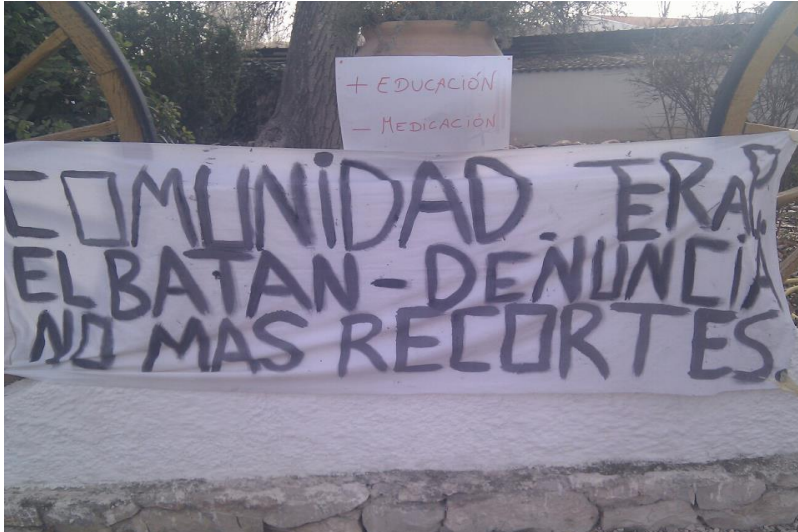 + EDUCACIÓN
- MEDICACIÓN
COMUNIDAD. TERAP.
EL BATAN - DENUNCIA
NO MAS RECORTES.